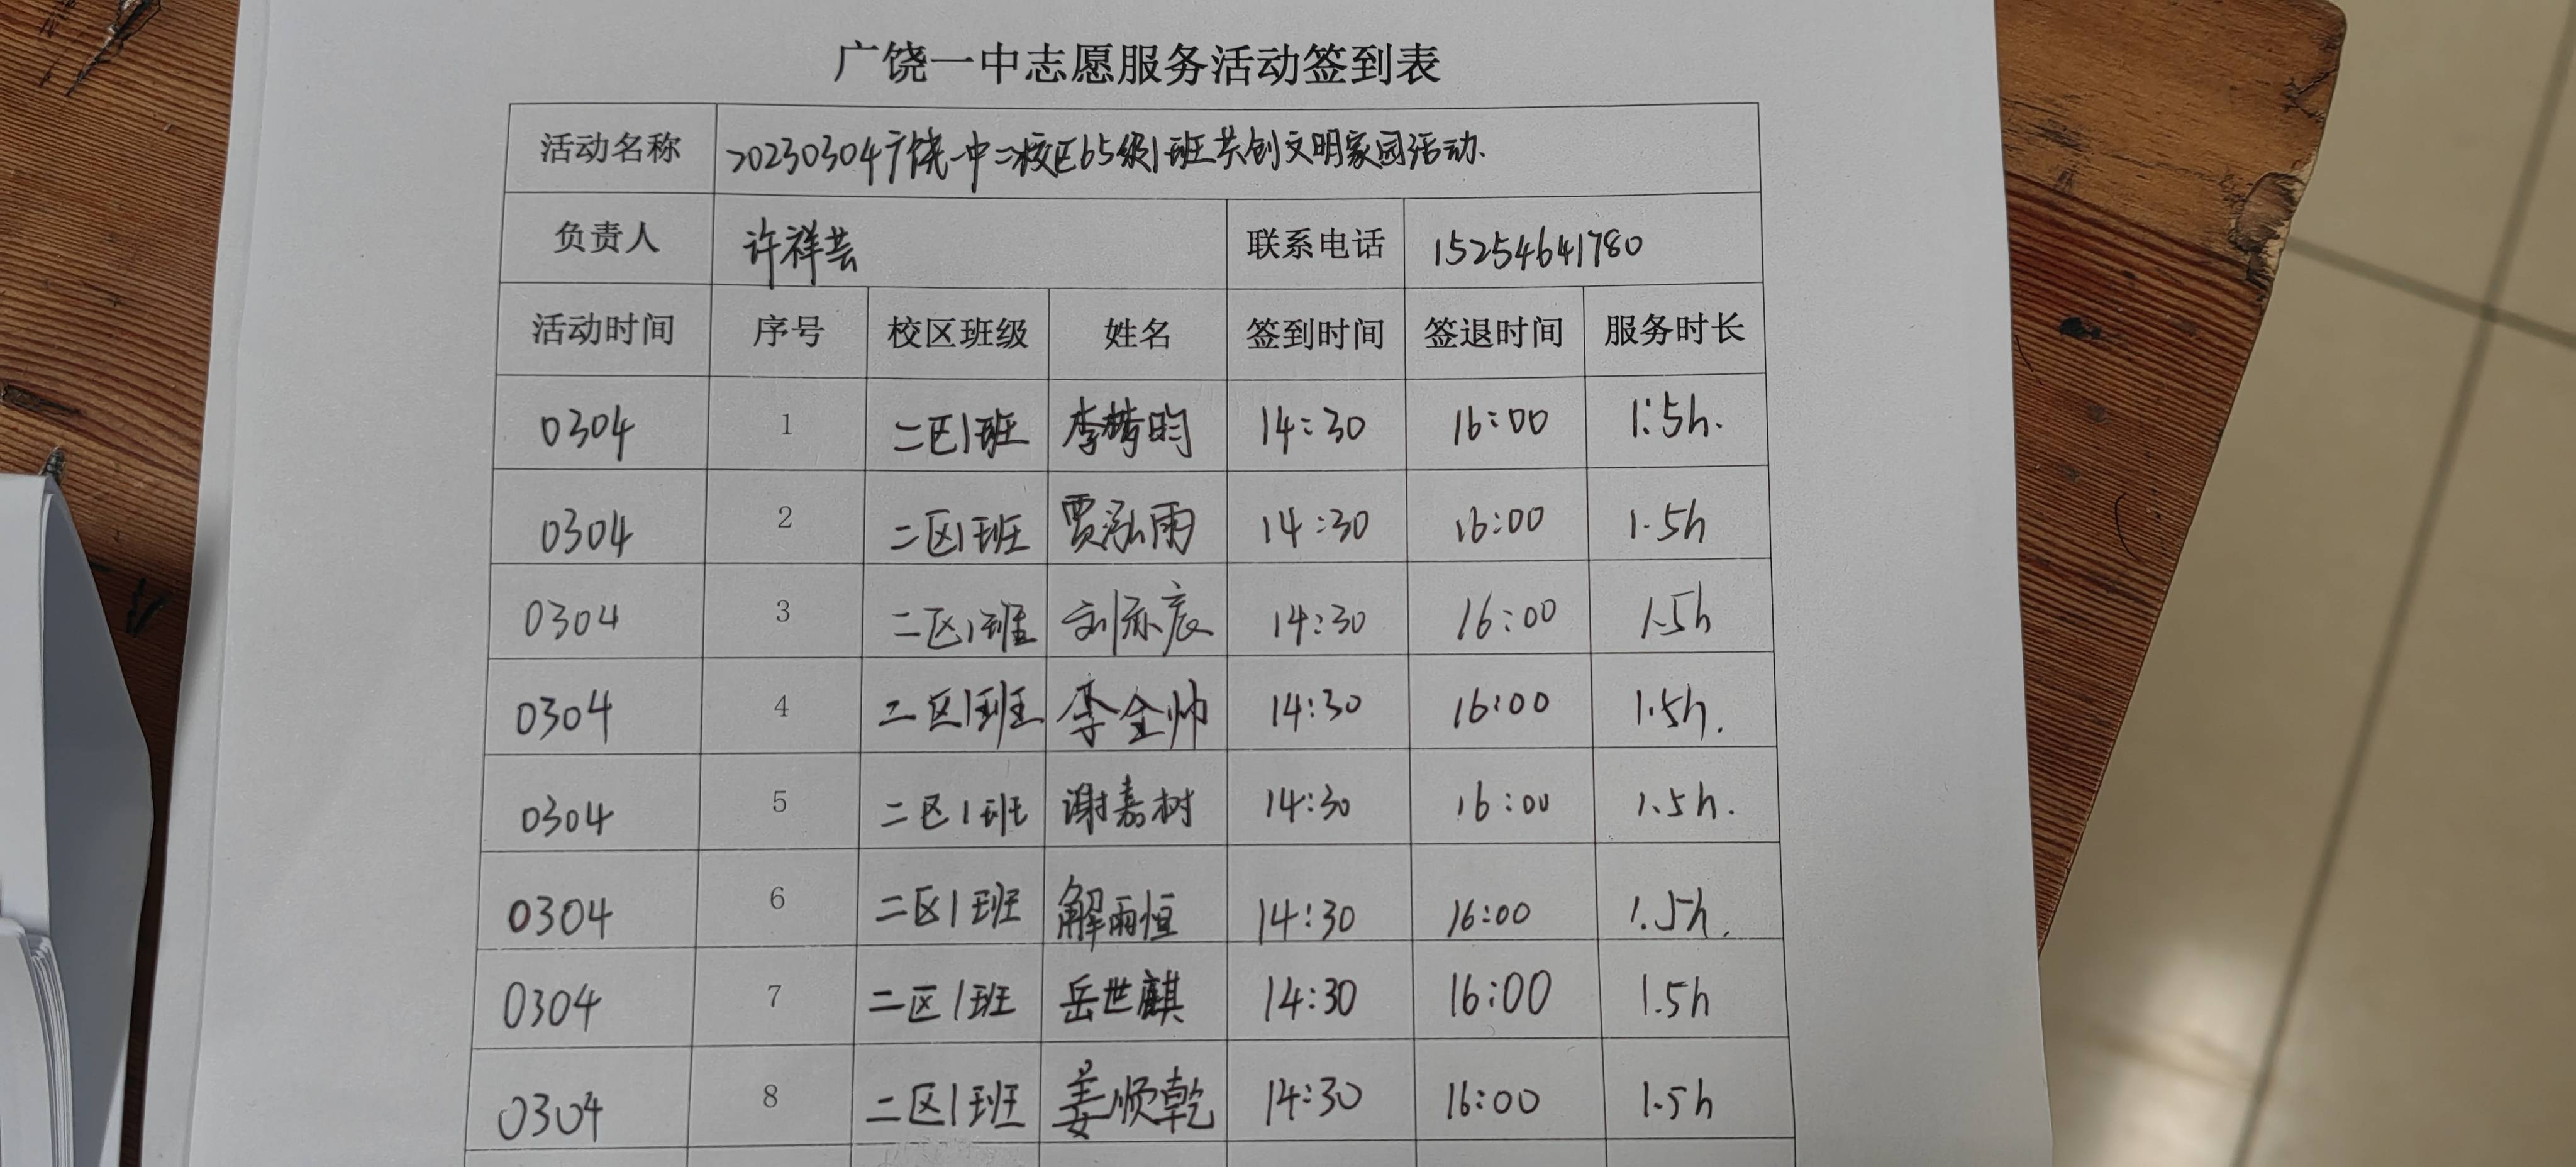 广饶一中志愿服务活动签到表
活动名称 20230304广饶一中二校区65级1班共创文明家园活动.
负责人 许祥芸 联系电话 15254641780
活动时间 序号 校区班级 姓名 签到时间 签退时间 服务时长
0304 1 二区1班 李梦昀 14:30 16:00 1.5h.
0304 2 二区1班 贾泓雨 14:30 16:00 1.5h
0304 3 二区1班 刘亦辰 14:30 16:00 1.5h
0304 4 二区1班 李金帅 14:30 16:00 1.5h.
0304 5 二区1班 谢嘉树 14:30 16:00 1.5h.
0304 6 二区1班 解雨恒 14:30 16:00 1.5h.
0304 7 二区1班 岳世麒 14:30 16:00 1.5h
0304 8 二区1班 姜顺乾 14:30 16:00 1.5h